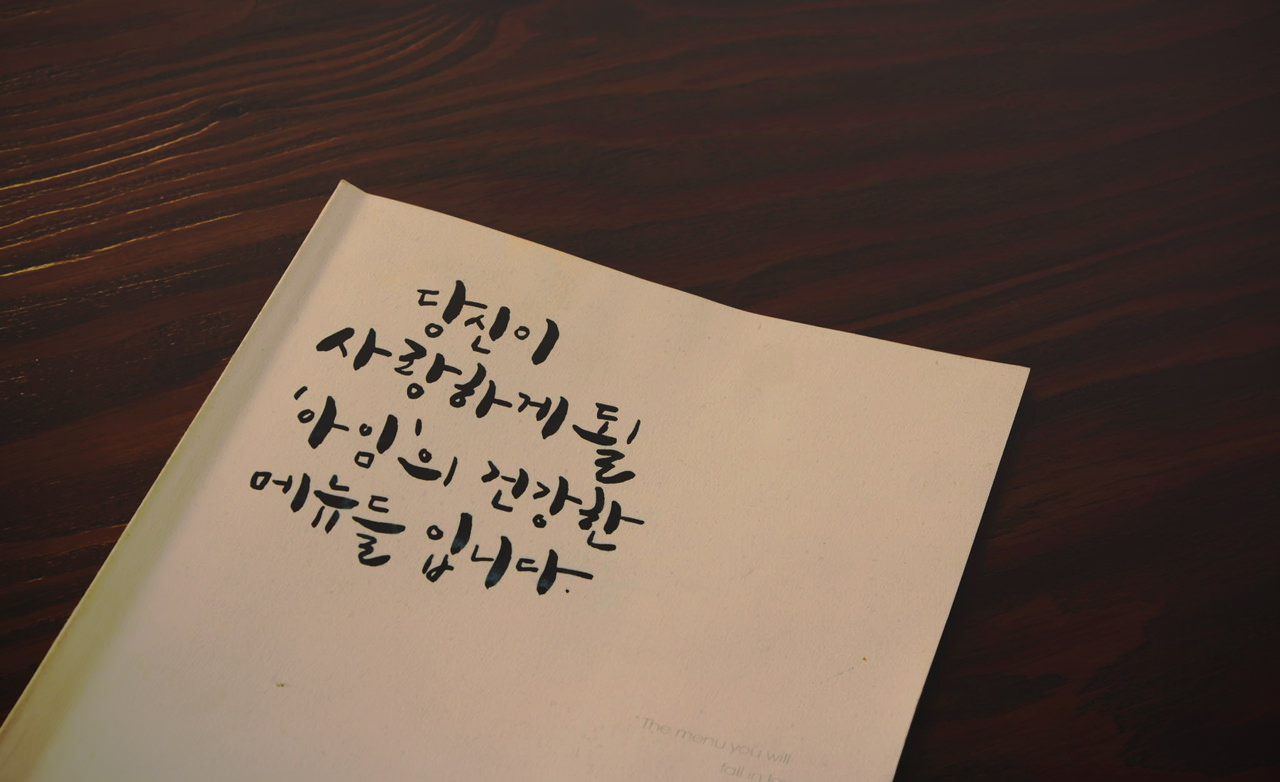 당신이
사랑하게 될
'아임'의 건강한
메뉴들 입니다.
"The menu you will
fall in